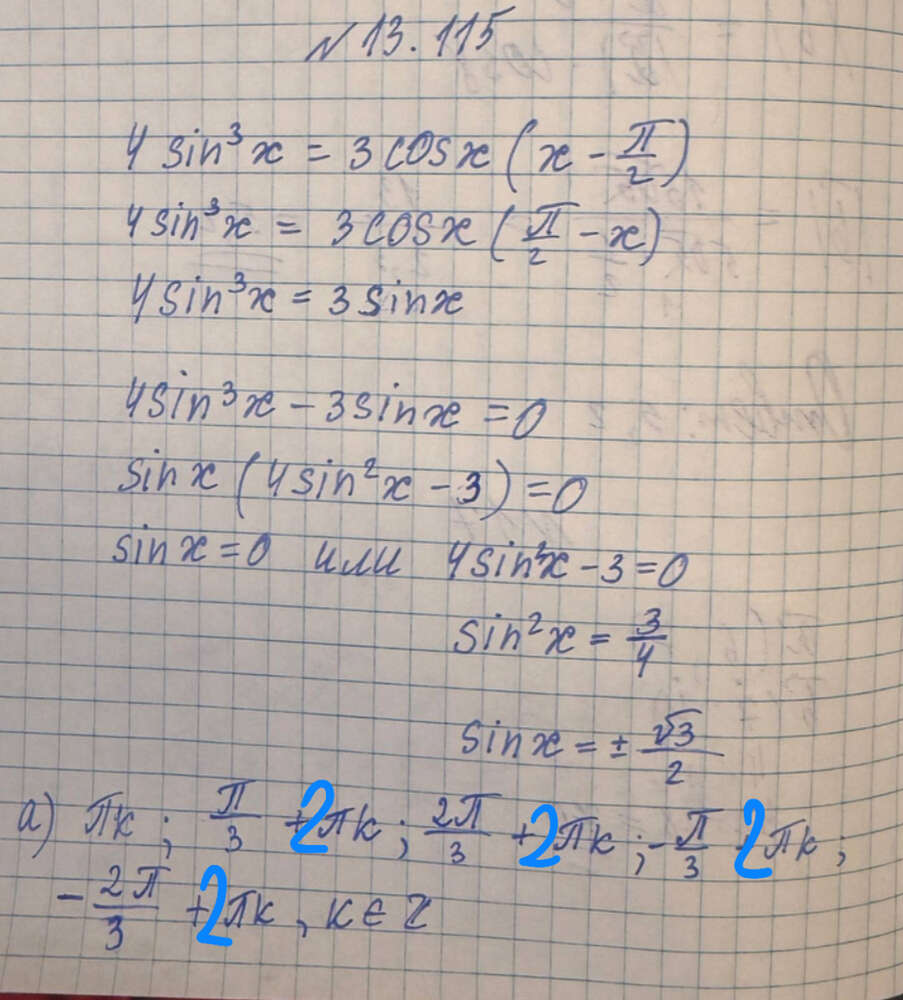 № 13.115
4 sin³x = 3 cosx (x - π/2)
4sin³x = 3cosx (π/2 - x)
4sin³x = 3sinx
4sin³x - 3sinx = 0
sinx (4sin²x - 3) = 0
sinx = 0 или 4sin²x - 3 = 0
sin²x = 3/4
sinx = ± √3/2
а) πк ; π/3 + 2πк ; 2π/3 + 2πк ; -π/3 + 2πк ;
- 2π/3 + 2πк , к ∈ Z